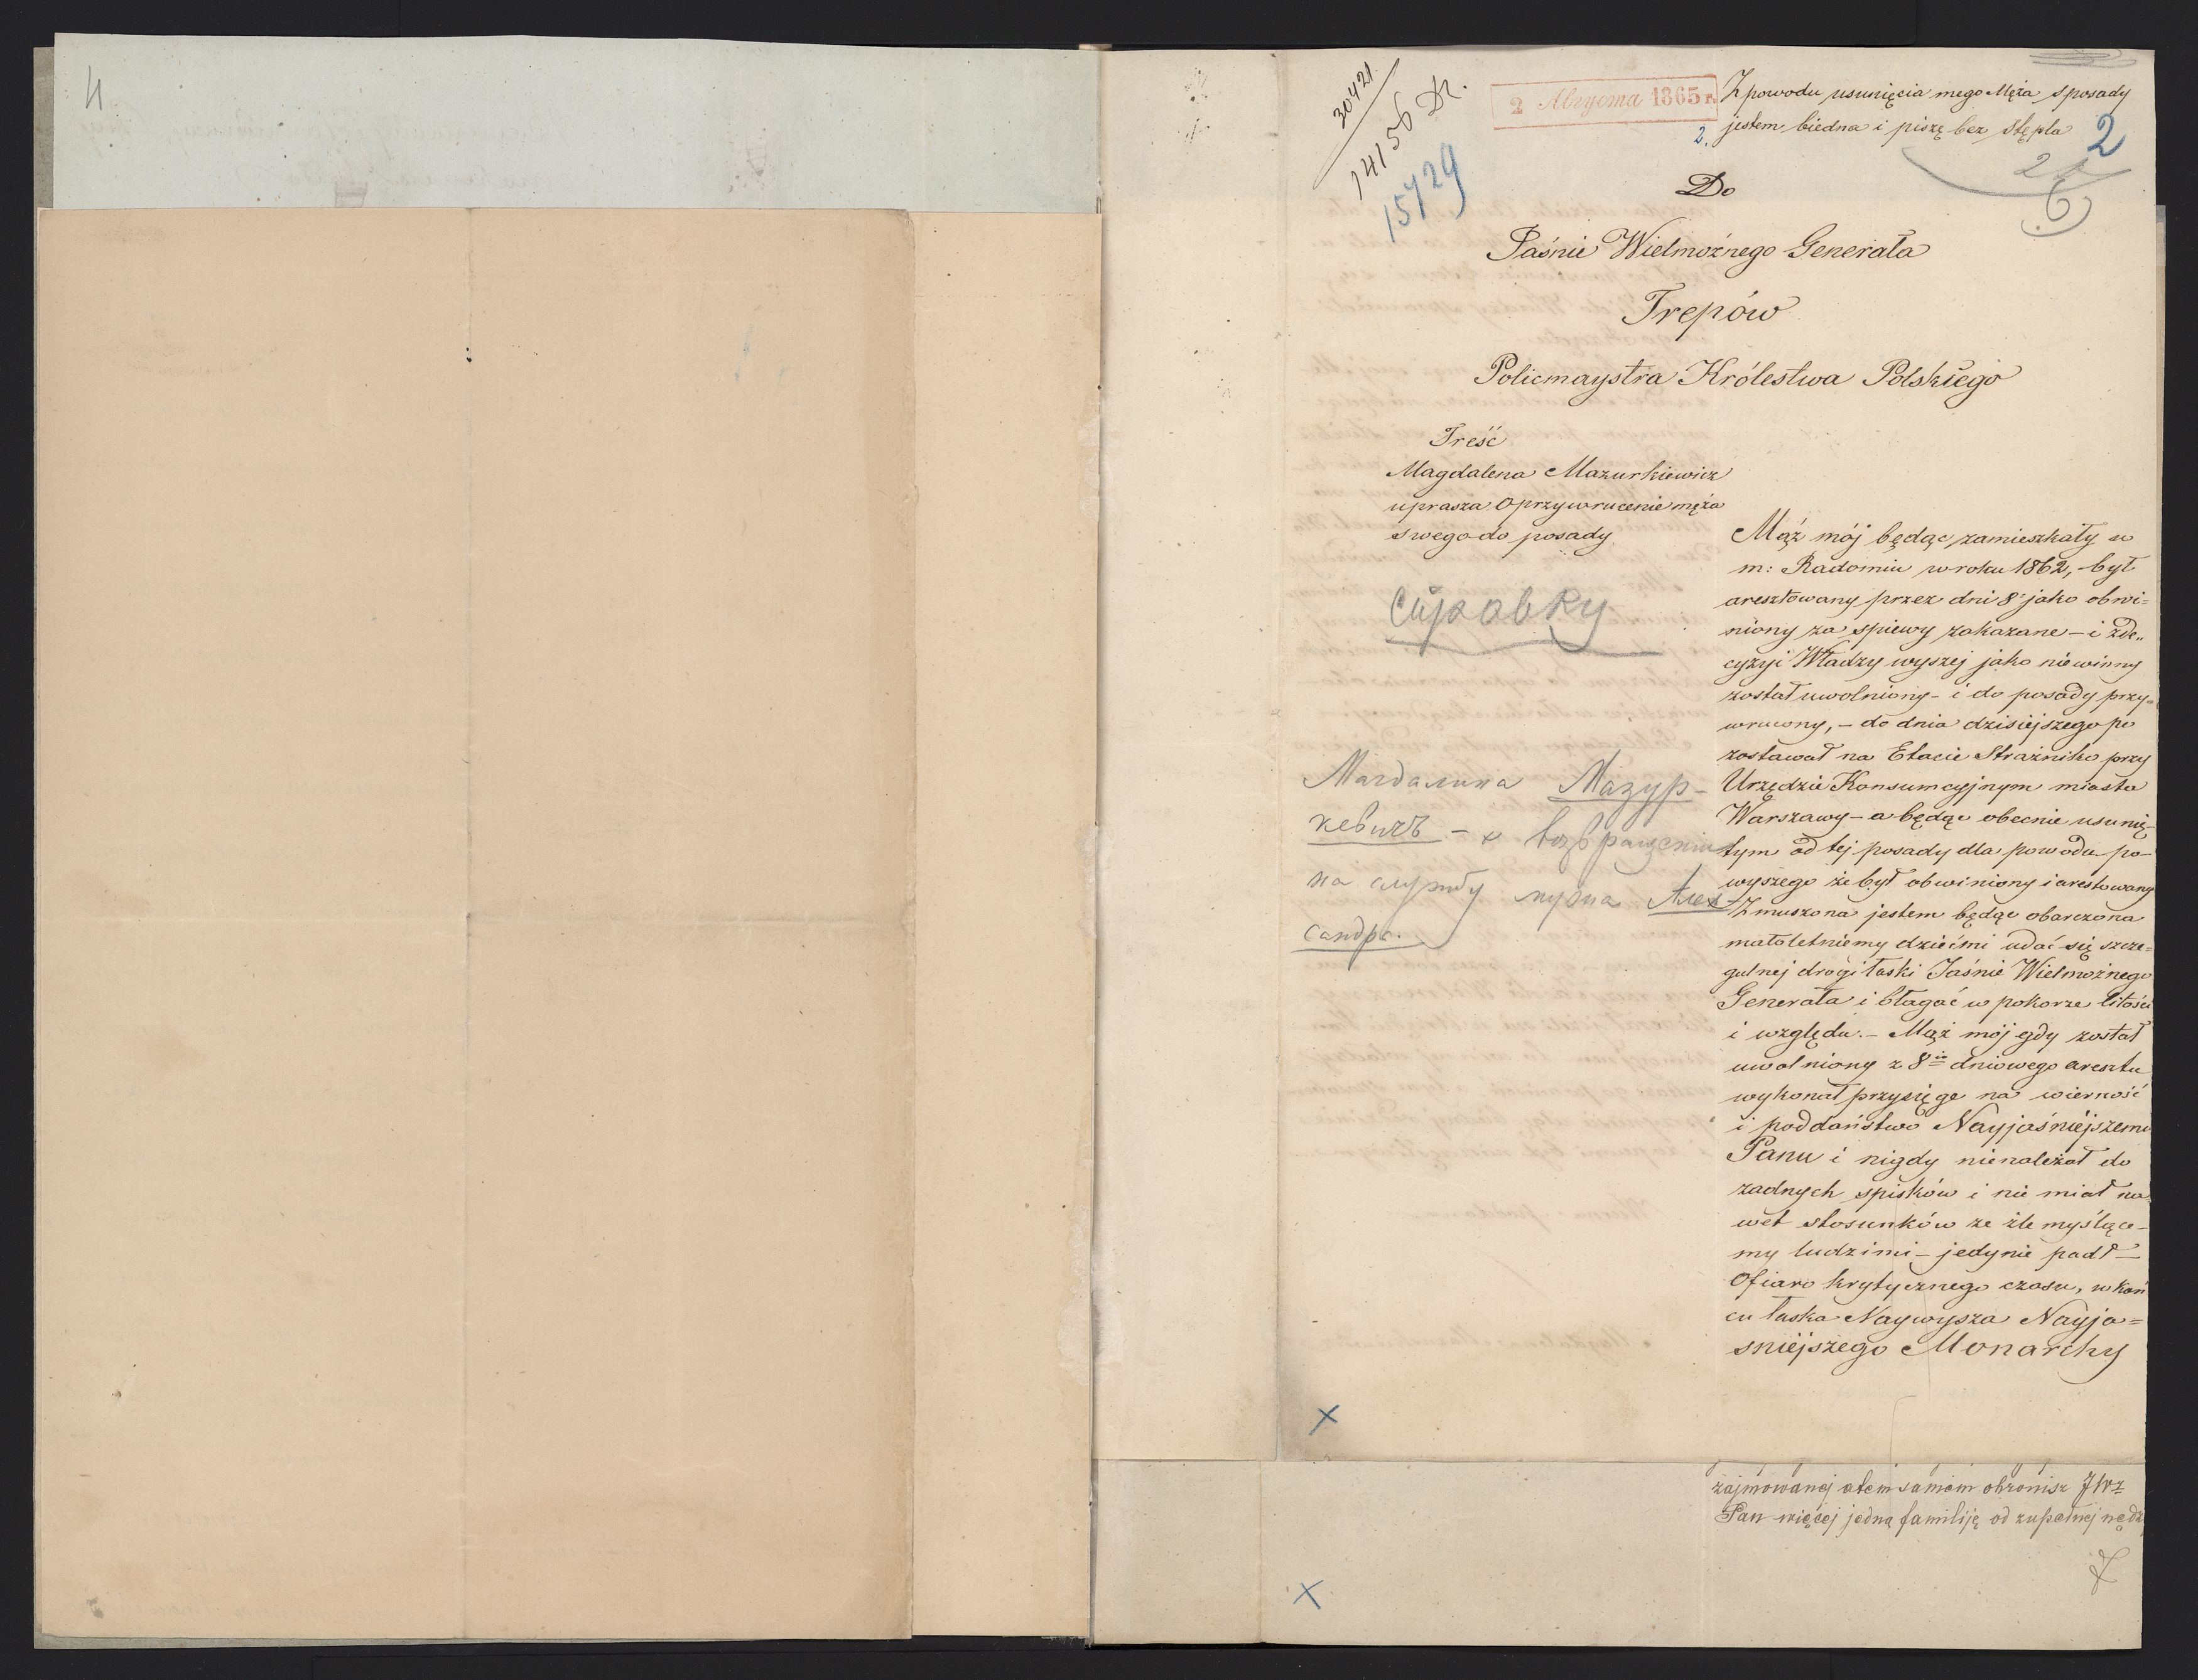 4
30421
14156 Дг.
15729
2 Августа 1865 г.
Z powodu usunięcia mego Męża s posady
2. jestem biedna i piszę bez Stępla
2
Do
Jaśnie Wielmożnego Generała
Trepów
Policmaystra Królestwa Polskiego
Treść
Magdalena Mazurkiewicz
uprasza o przywrucenie męża
swego do posady
Справку
Магдалина Мазур-
кевичъ - о возвращении
на службу мужа Алек-
сандра.
Mąż mój będąc zamieszkały w
m: Radomiu w roku 1862, był
aresztowany przez dni 8 jako obwi=
niony za spiewy zakazane - i z de„
cyzyi Władzy wyszej jako niewinny
został uwolniony - i do posady przy=
wrucony, - do dnia dzisiejszego po
zostawał na Etacie Strażnika przy
Urzędzie Konsumcyjnym miasta
Warszawy - a będąc obecnie usunię-
tym od tej posady dla powodu po-
wyszego że był obwiniony i arestowany
Zmuszona jestem będąc obarczona
małoletniemy dziećmi udać się szcze=
gulnej drogi łaski Jaśnie Wielmożnego
Generała i błagać w pokorze litości
i względu. - Mąż mój gdy został
uwolniony z 8io dniowego aresztu
wykonał przysięge na wierność
i poddaństwo Nayjaśniejszemu
Panu i nigdy nienależał do
żadnych spisków i nie miał na
wet stosunków ze źle myślące-
my ludzimi - jedynie padł -
Ofiaro krytycznego czasu, w koń
cu łaska Naywysza Nayja=
sniejszego Monarchy
zajmowanej a tem samem ohronisz JWz
Pan więcej jedną familiję od zupełnej nędz